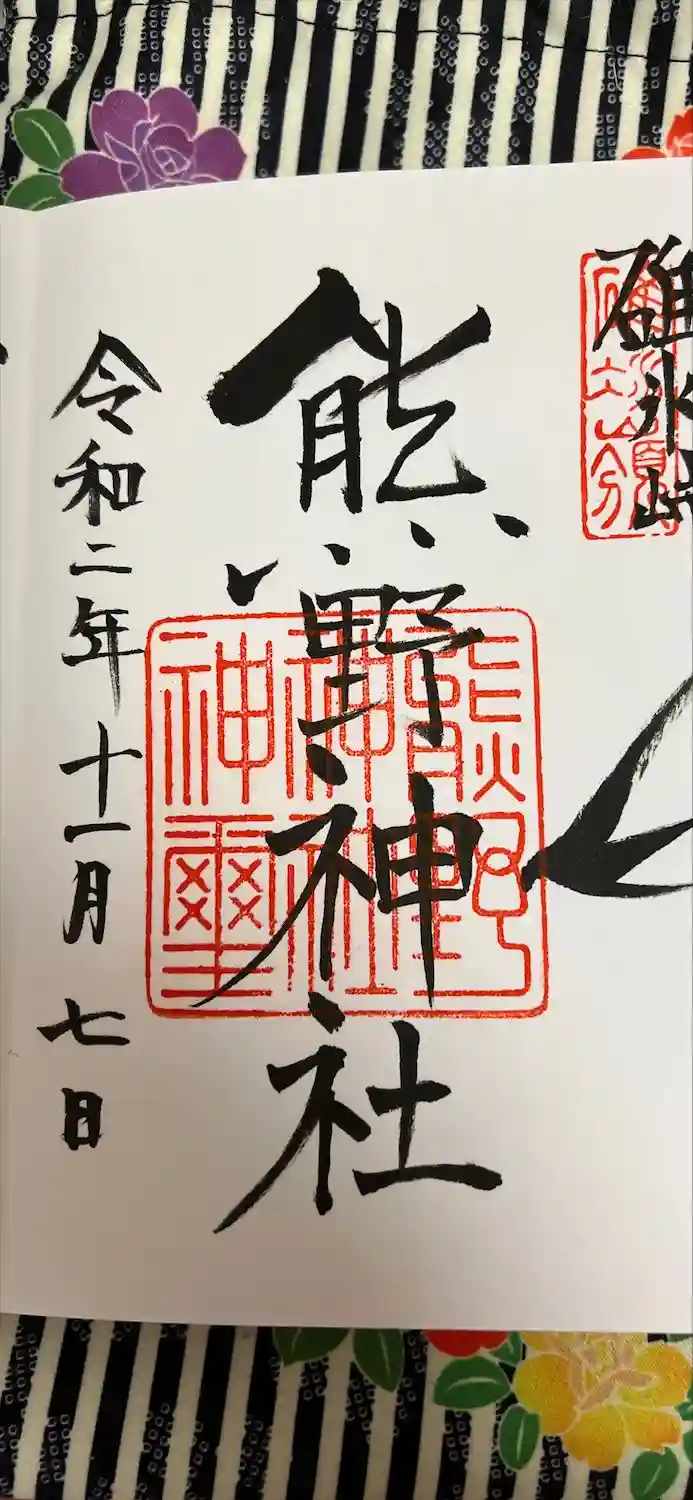 碓氷峠
碓氷嶺
熊野神社
熊野
神社
神璽
令和二年十一月七日